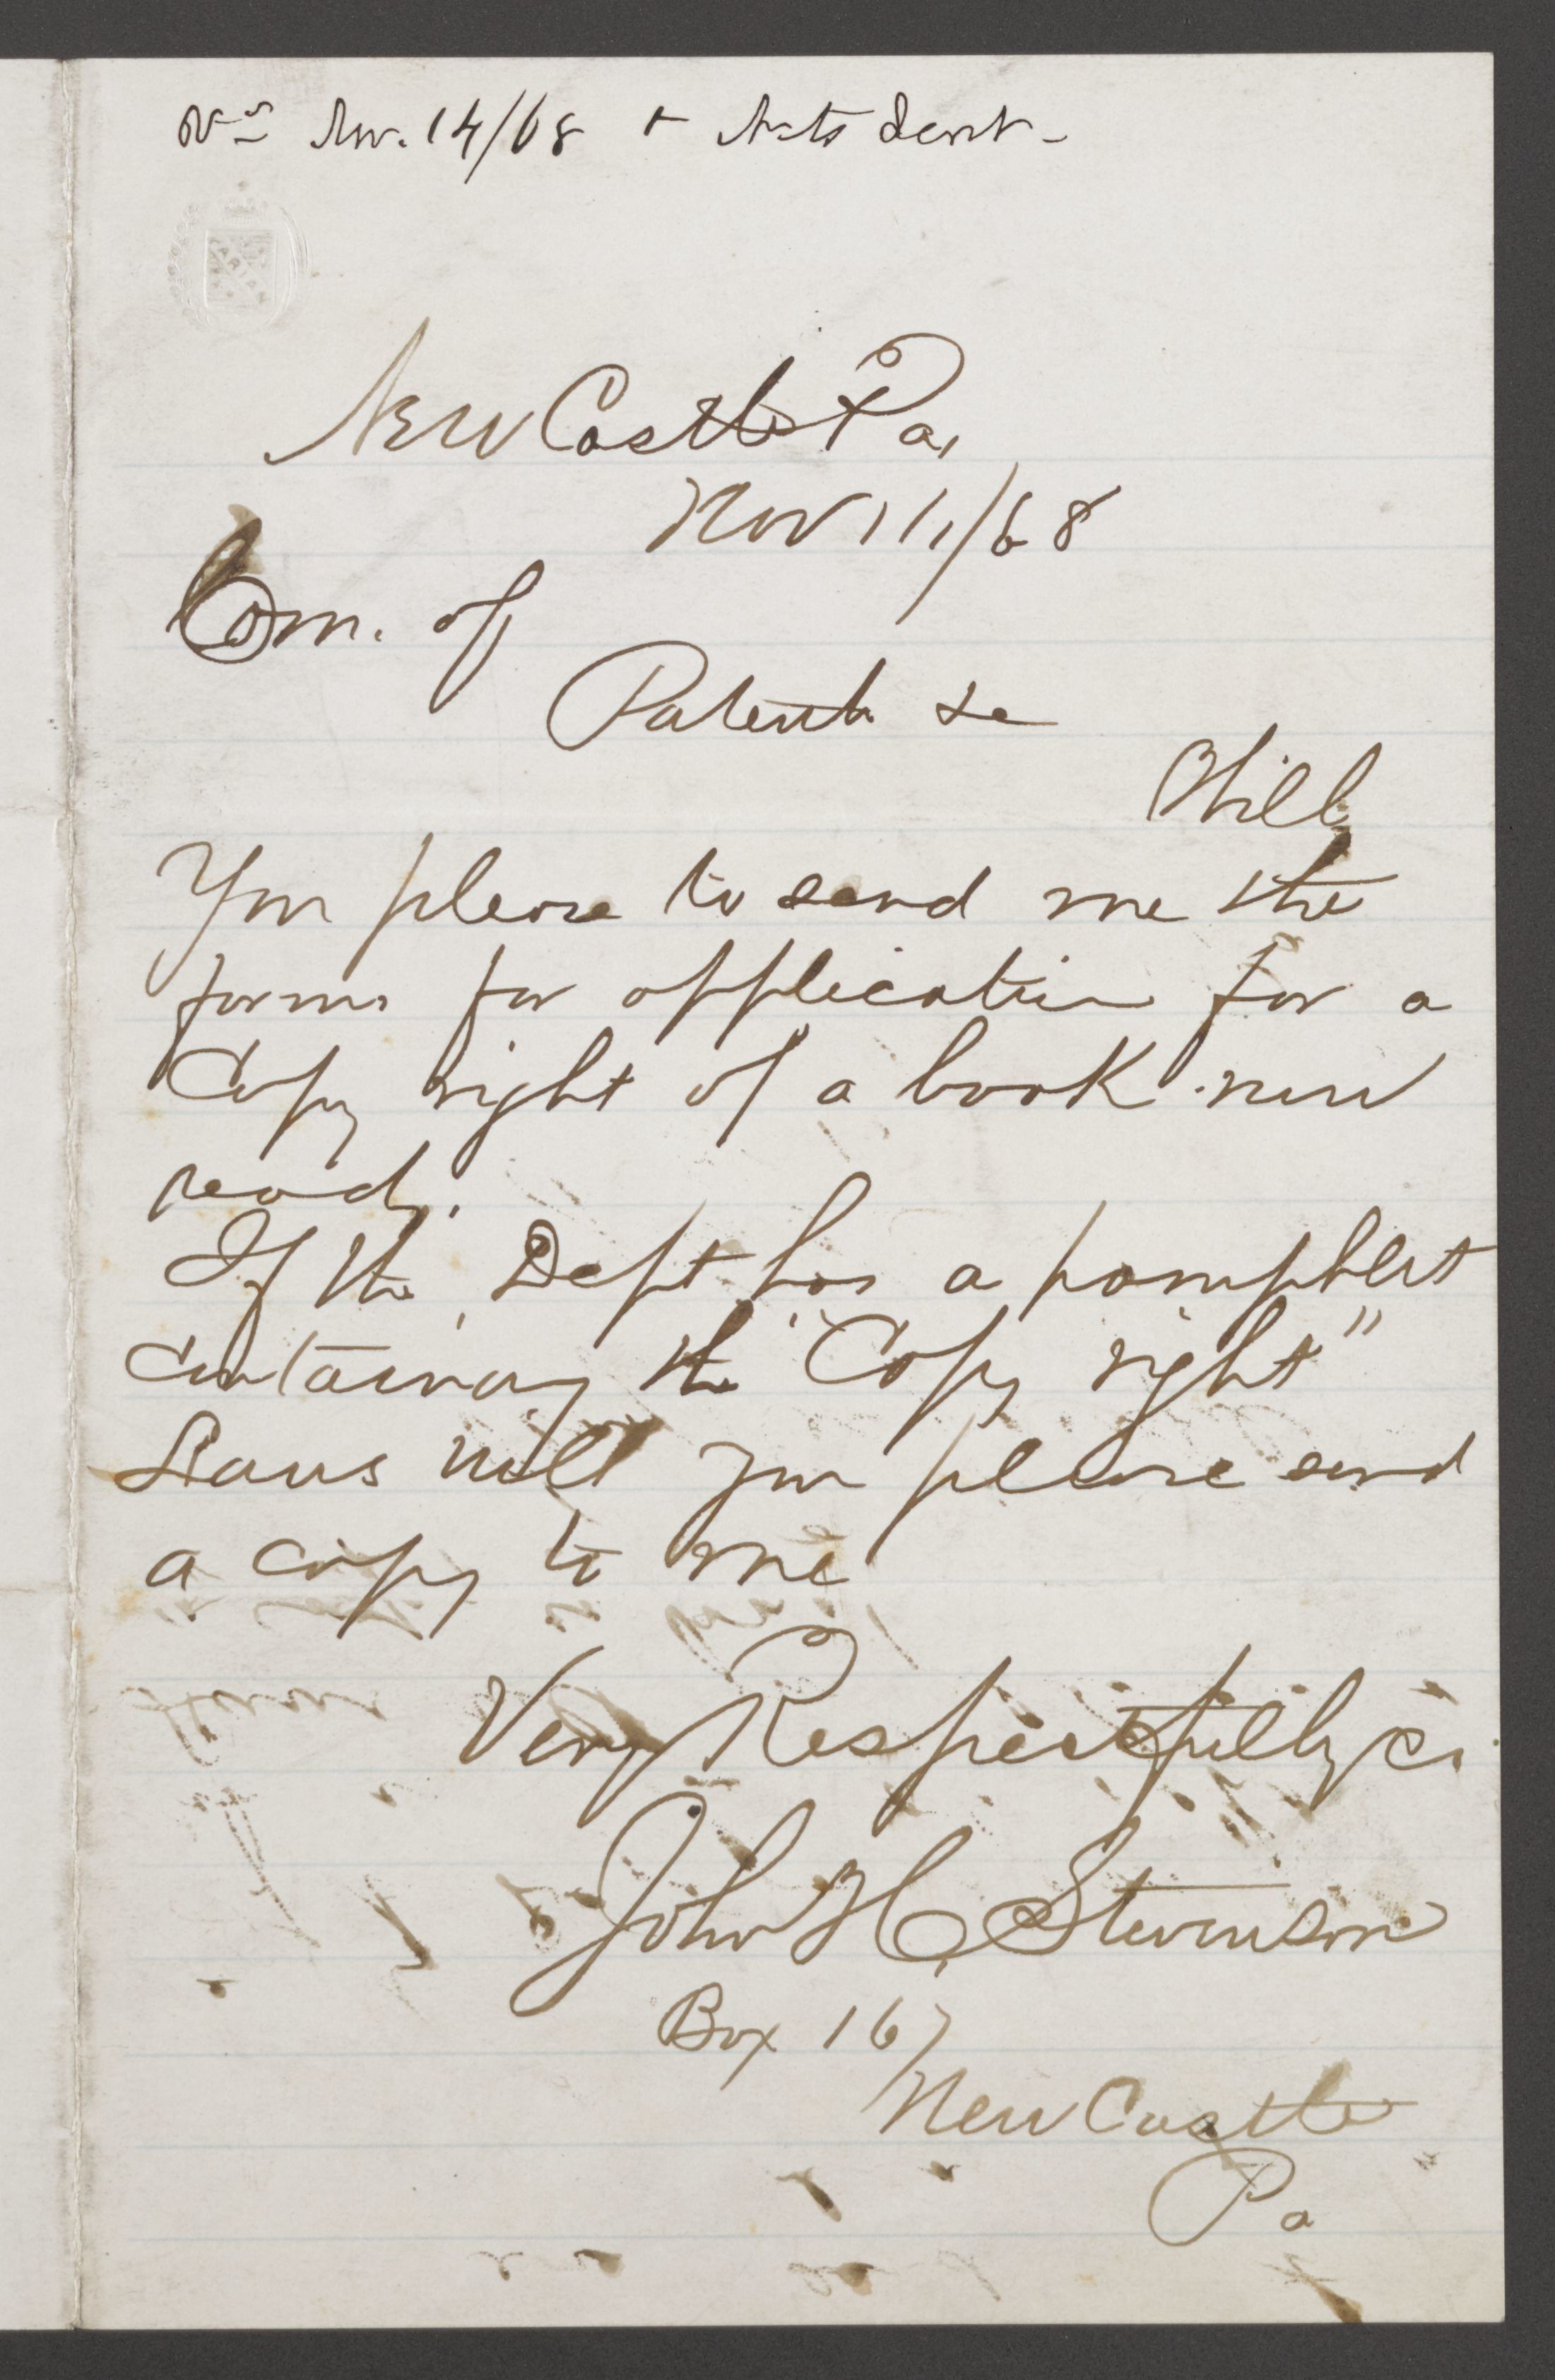 Nov. 14/68 & Acts sent -
New Castle Pa,
Nov 11,/68
Com. of
Patents &c
Will
You please to send me the
forms for application for a
Copy right of a book now
ready.
If the Dept has a pamphlet
containing the "Copy right"
Laws will you please send
a copy to me
Very Respectfully &c.
John H. Stevenson
Box 167
New Castle
Pa